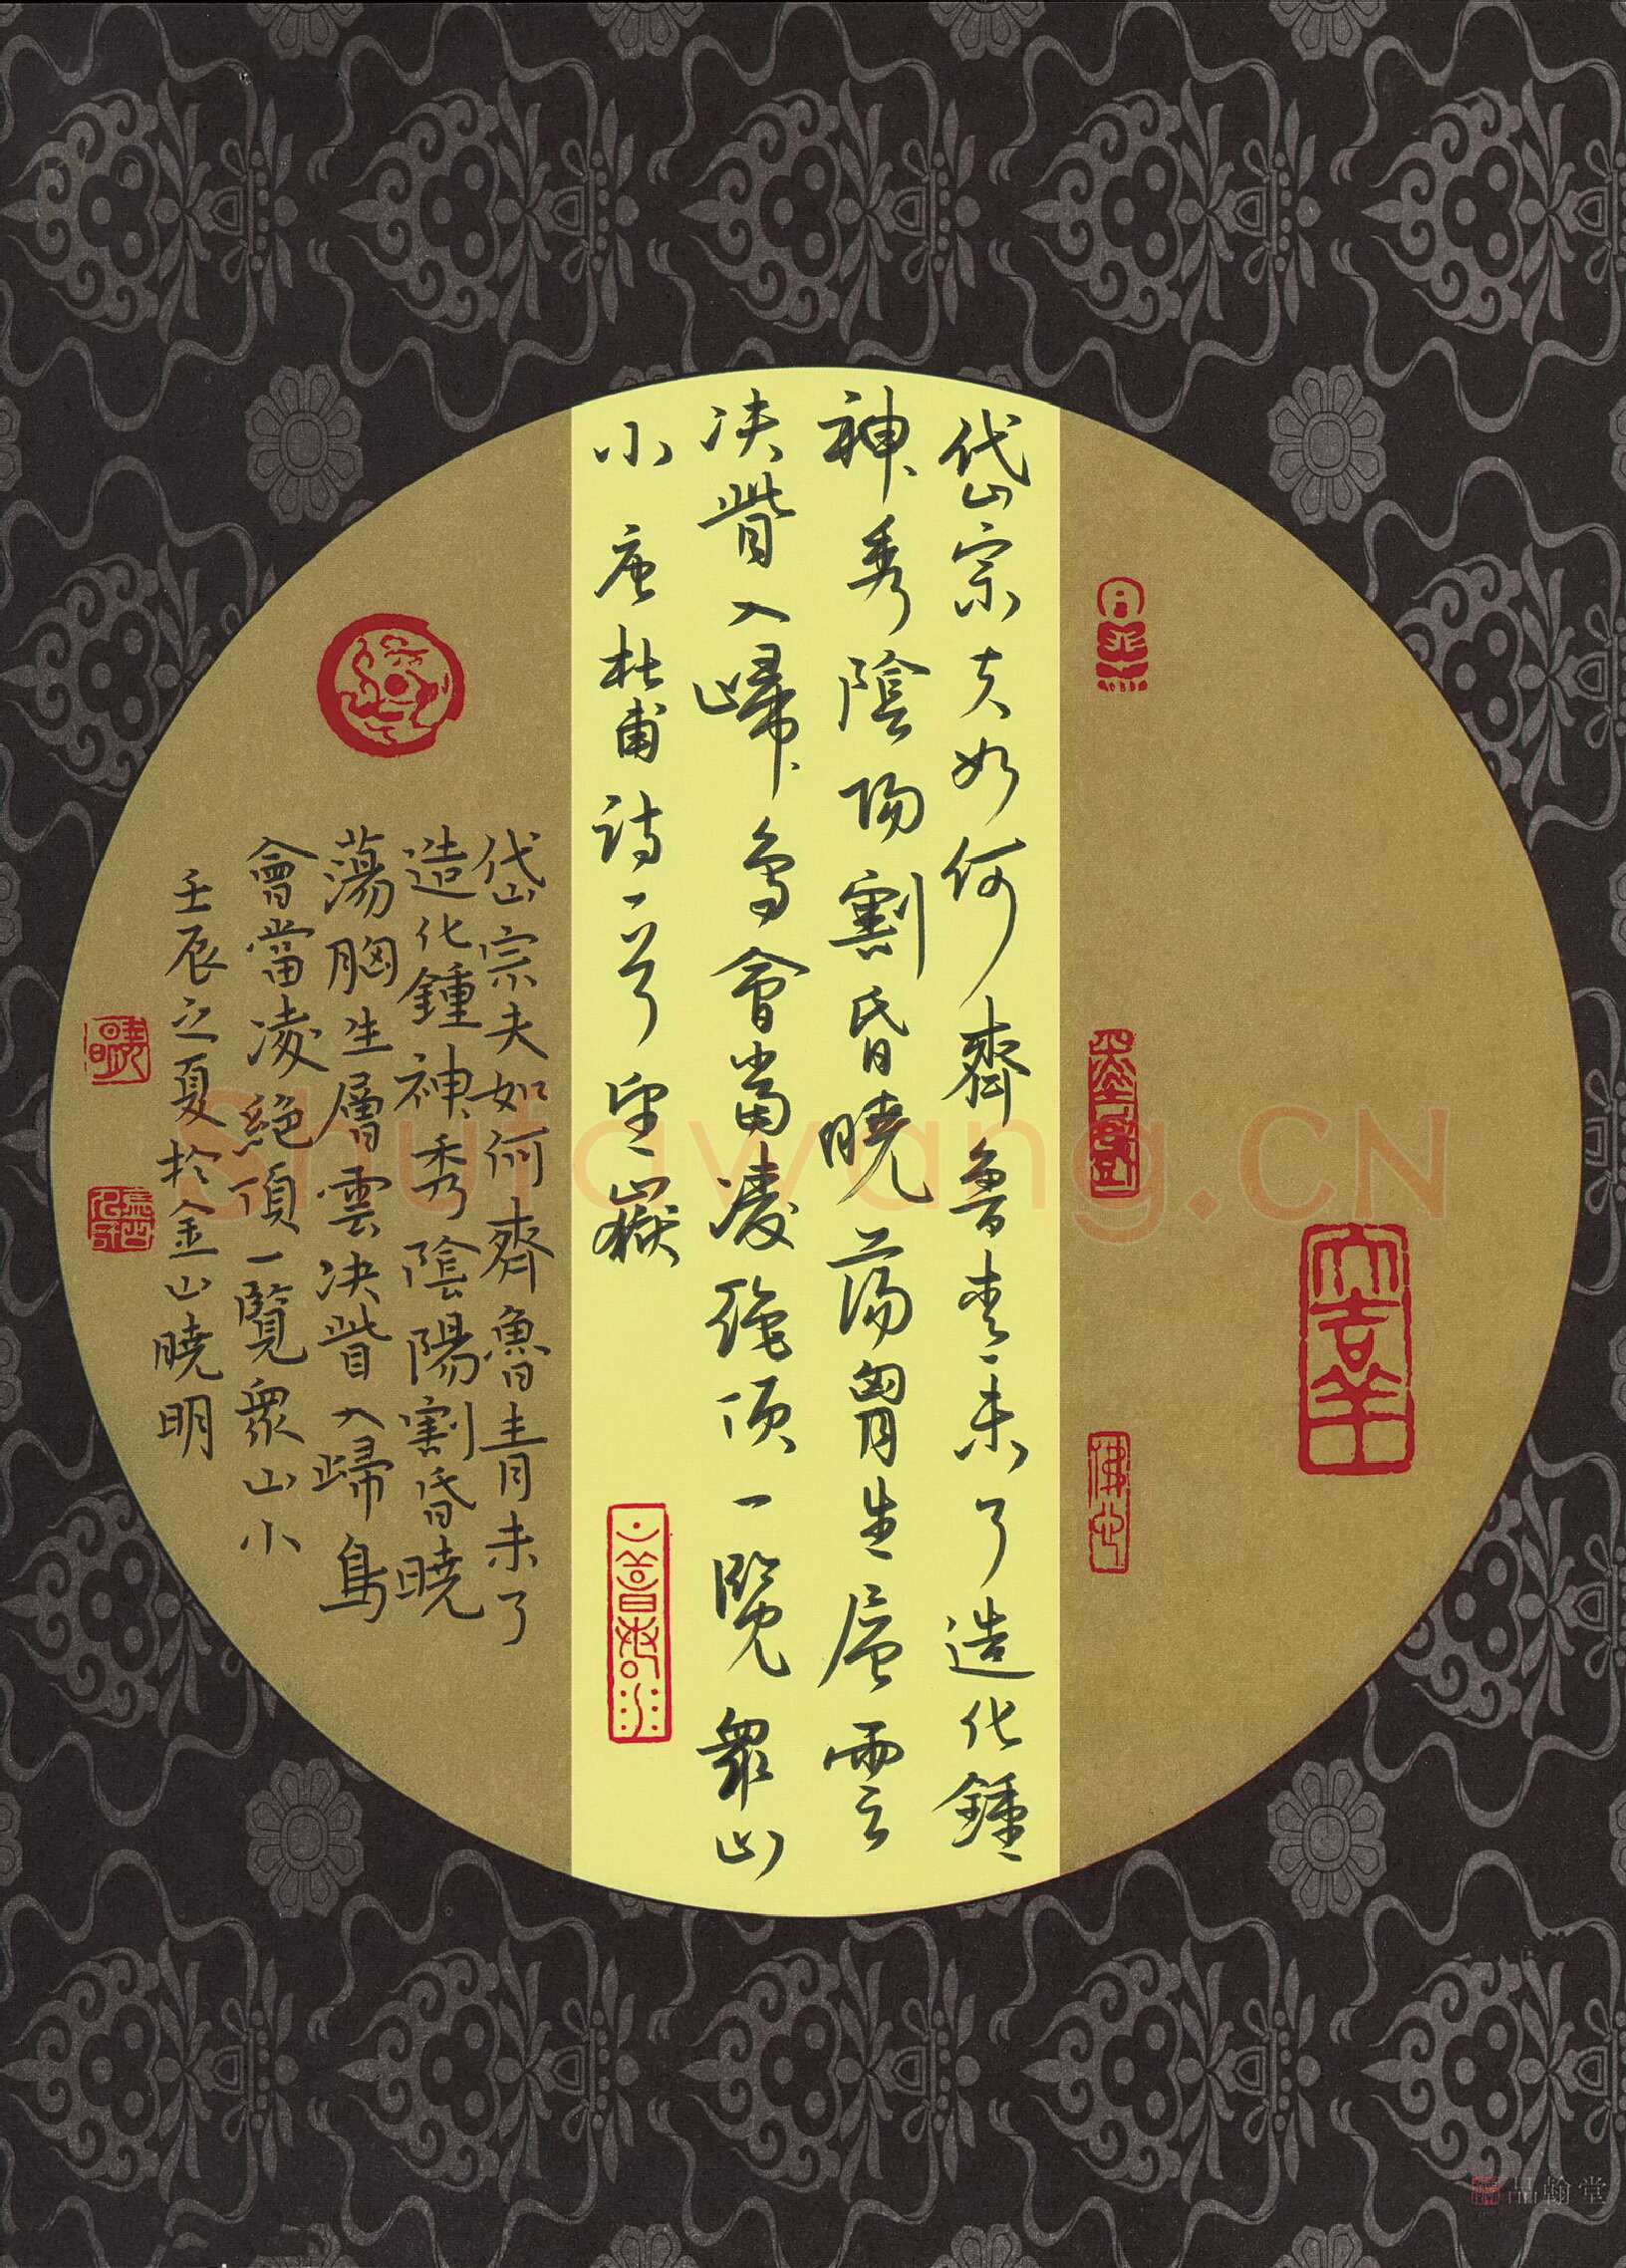 岱宗夫如何齊魯青未了造化鍾
神秀陰陽割昏曉蕩胷生層雲
決眥入歸鳥會當凌絕頂一覽眾山
小 唐杜甫詩一首望嶽
岱宗夫如何齊魯青未了
造化鍾神秀陰陽割昏曉
蕩胸生層雲決眥入歸鳥
會當凌絕頂一覽眾山小
壬辰之夏於金山曉明
Shufawang.CN
品翰堂